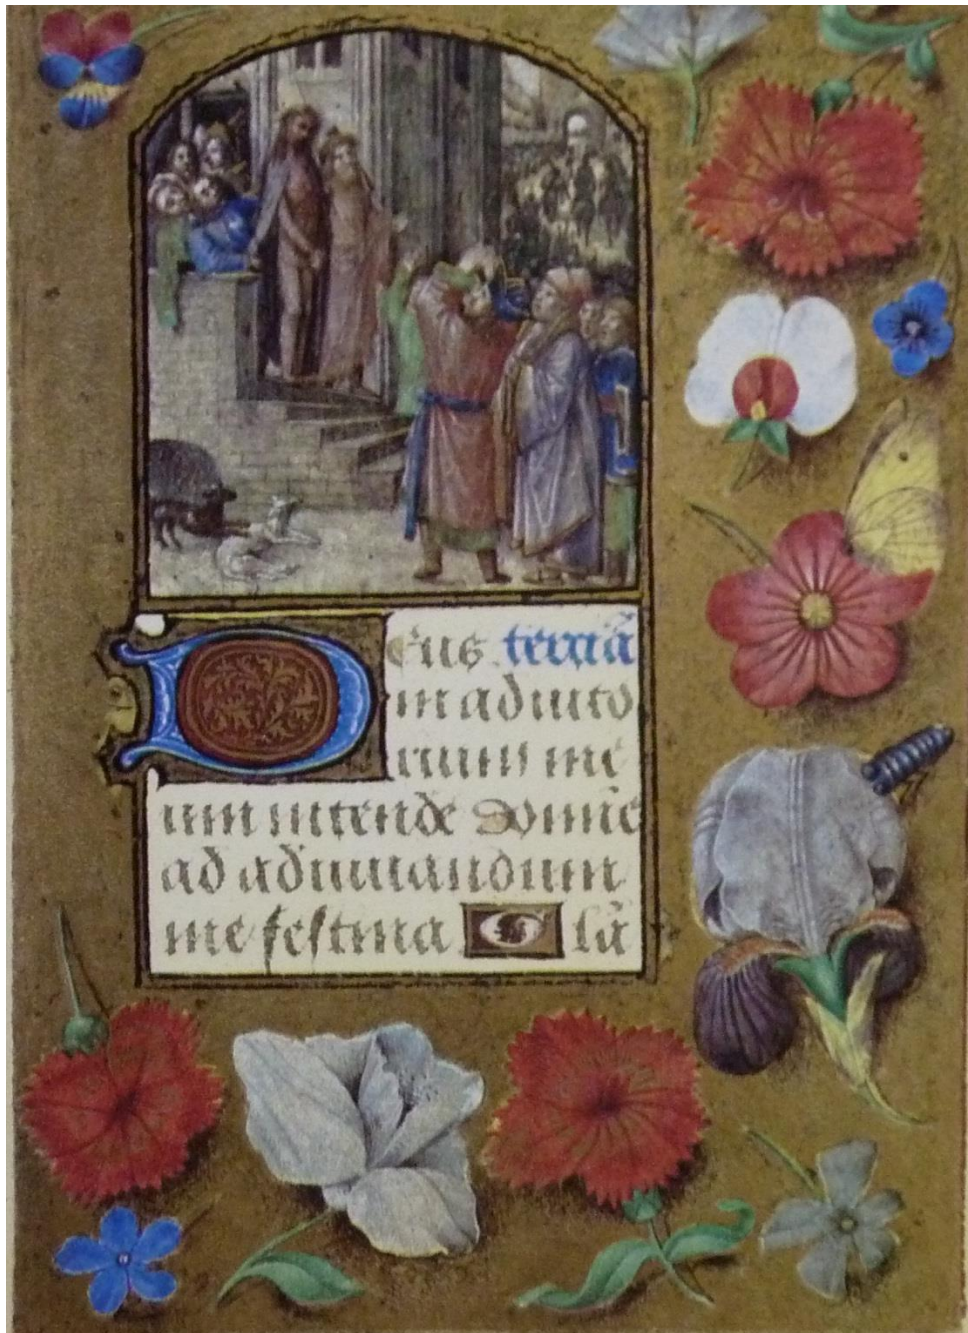 Deus. terciã
in adiuto
rium me
um intende Domĩe
ad adiuuandum
me festina G lã